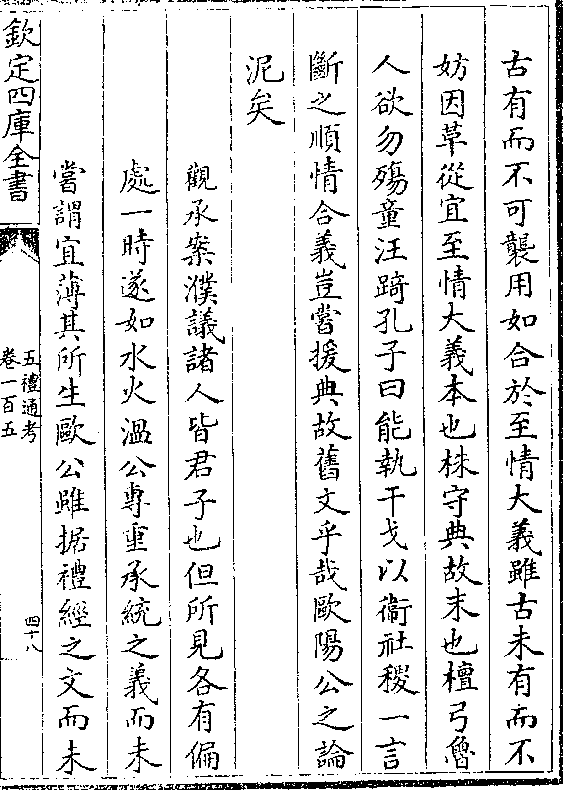 古有而不可襲用如合於至情大義雖古未有而不
妨因革從宜至情大義本也株守典故末也檀弓魯
人欲勿殤童汪踦孔子曰能執干戈以衞社稷一言
斷之順情合義豈嘗援典故舊文乎哉歐陽公之論
泥矣
觀承案濮議諸人皆君子也但所見各有偏
處一時遂如水火溫公專重承統之義而未
嘗謂宜薄其所生歐公雖据禮經之文而未
欽定四庫全書
五禮通考
卷一百五
四十八